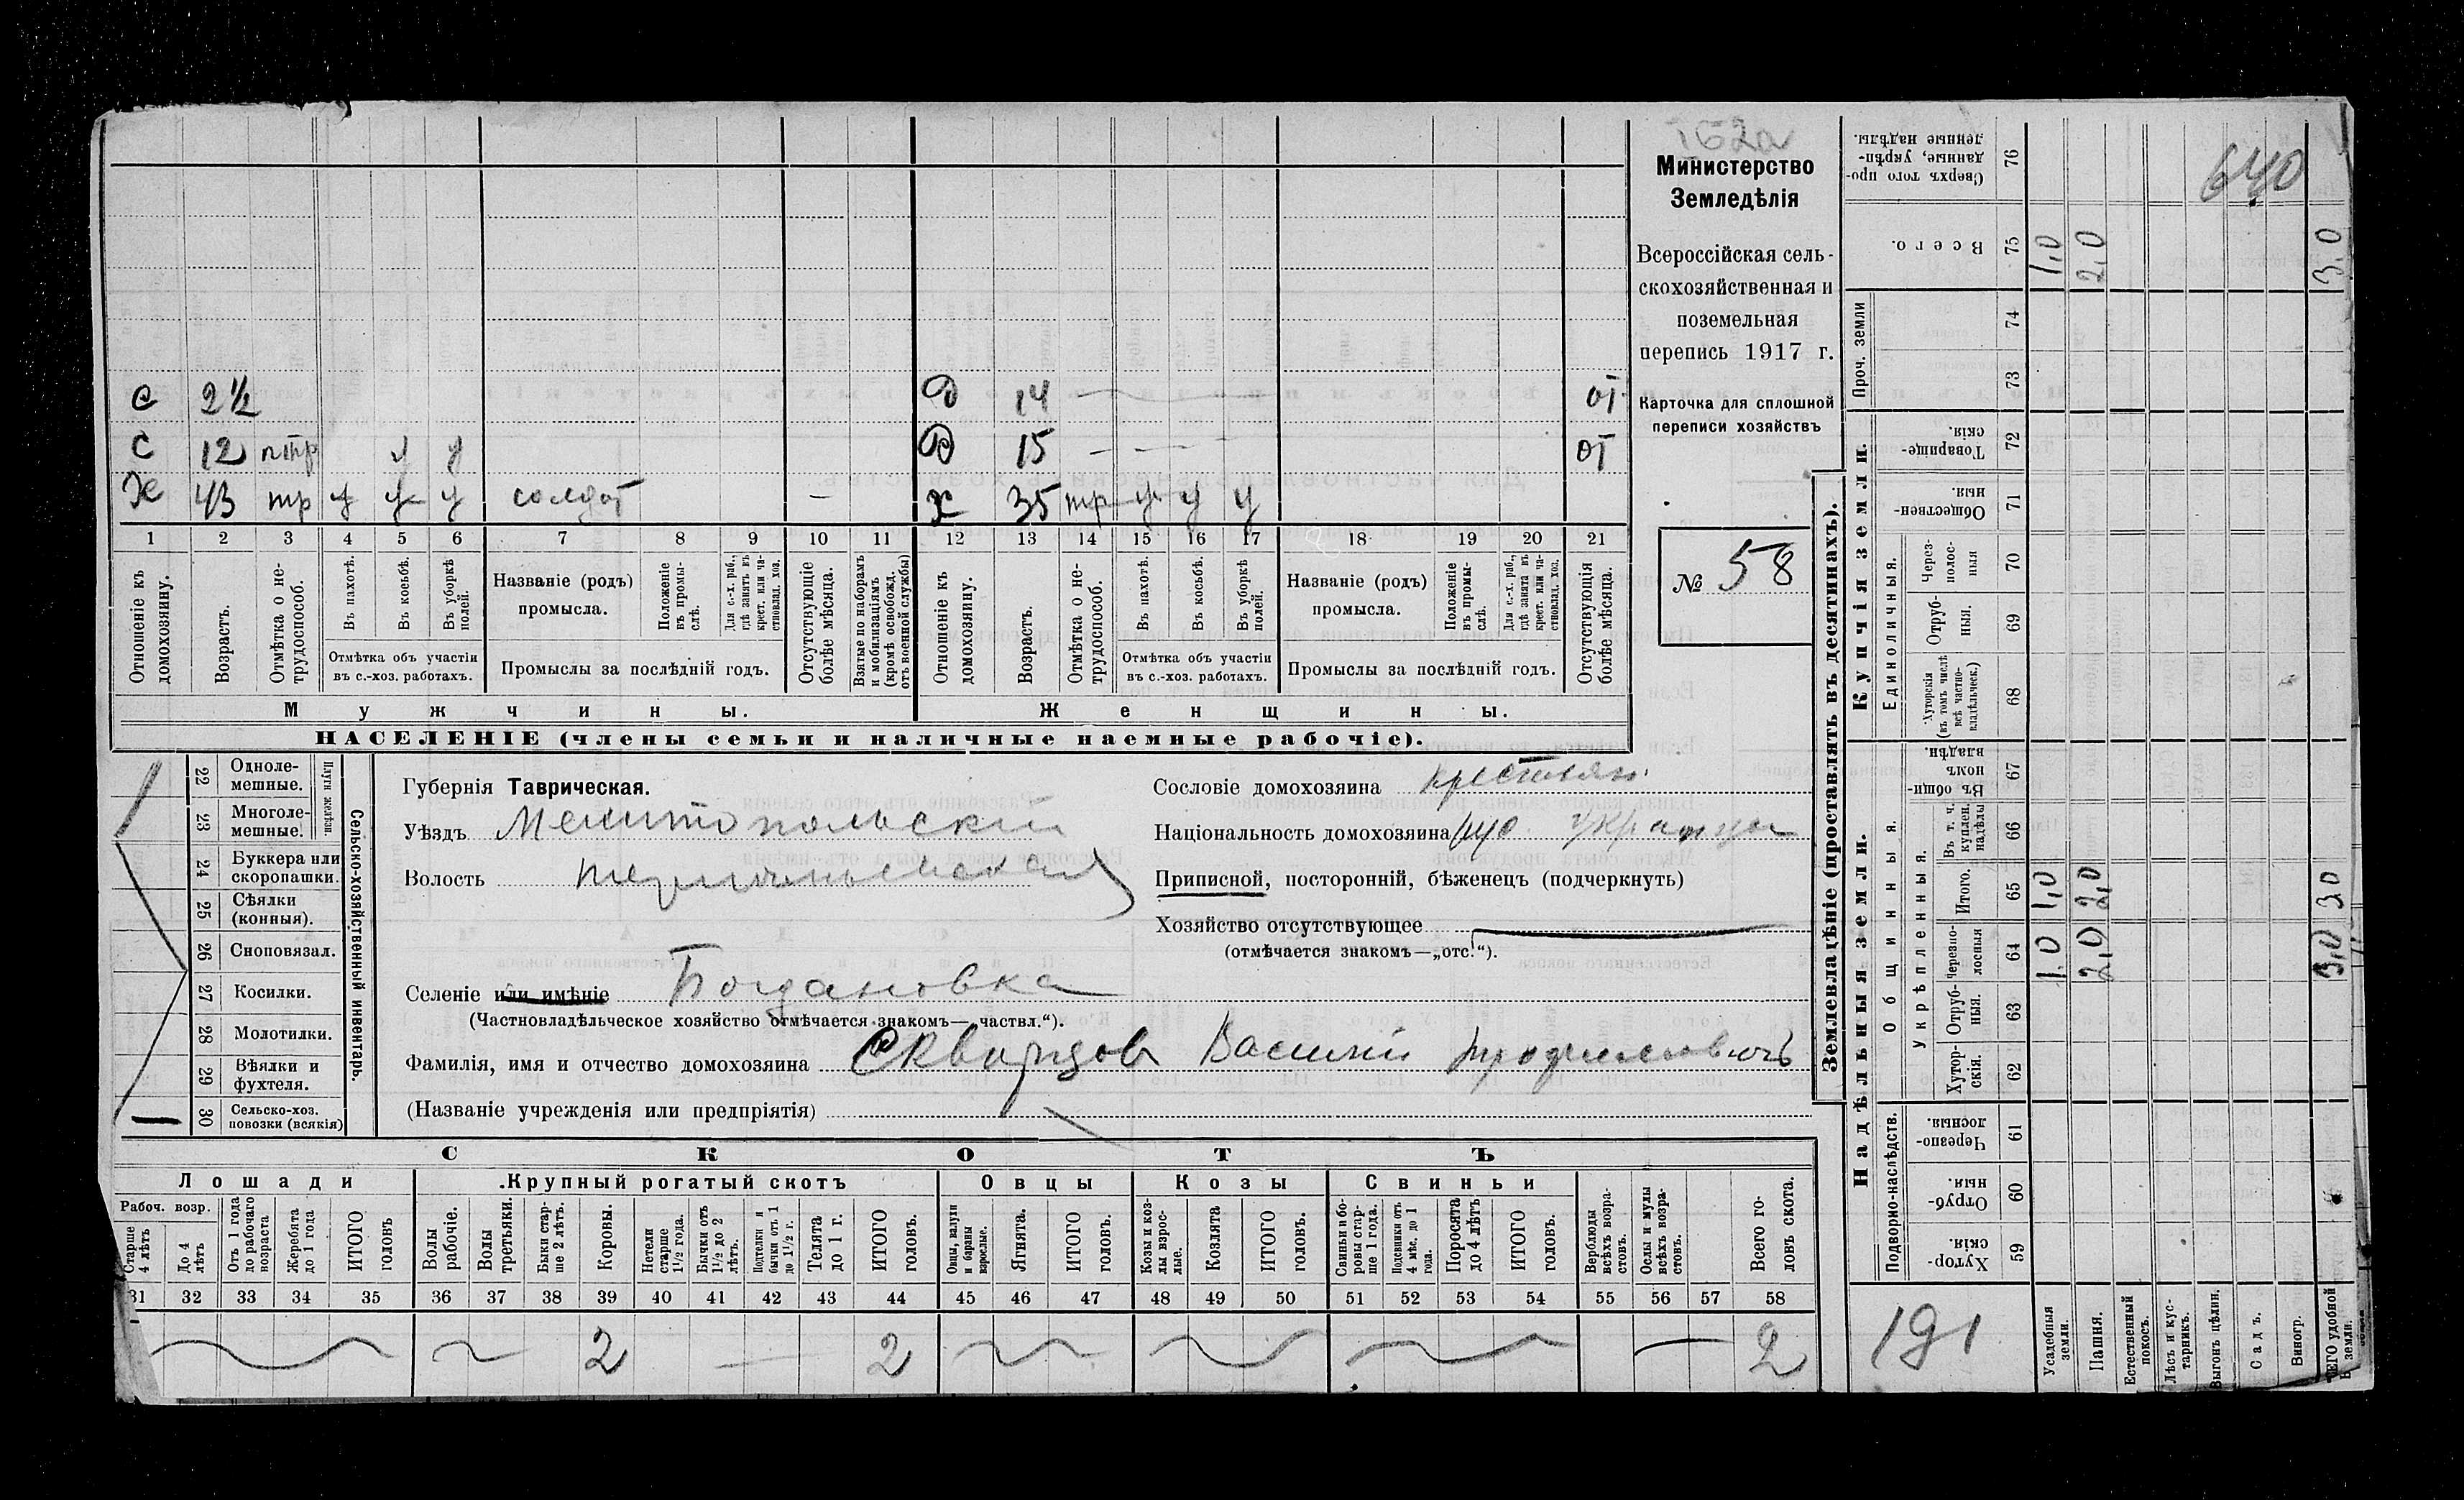 162а
Министерство
Земледѣлія
Всероссійская сель-
скохозяйственная и
поземельная
перепись 1917 г.
Карточка для сплошной
переписи хозяйствъ
№ 58
с 2½ Д 14 от
с 12 у у Д 15 от
Х 43 тр у у у солдат — х 35 тр у у у
1 2 3 4 5 6 7 8 9 10 11 12 13 14 15 16 17 18 19 20 21
Отношеніе къ домохозяину.
Возрастъ.
Отмѣтка о не-трудоспособ.
Въ пахотѣ.
Въ косьбѣ.
Въ уборкѣ полей.
Отмѣтка объ участіи
въ с.-хоз. работахъ.
Названіе (родъ)
промысла.
Положеніе въ промы-слѣ.
Для с.-х. раб., гдѣ занятъ въ крест. или ча-стновлад. хоз.
Промыслы за послѣдній годъ.
Отсутствующіе болѣе мѣсяца.
Взятые по наборамъ и мобилизаціямъ (кромѣ освобожд. отъ военной службы)
Отношеніе къ домохозяину.
Возрастъ.
Отмѣтка о не-трудоспособ.
Въ пахотѣ.
Въ косьбѣ.
Въ уборкѣ полей.
Отмѣтка объ участіи
въ с.-хоз. работахъ.
Названіе (родъ)
промысла.
Положеніе въ промы-слѣ.
Для с.-х. раб., гдѣ занята въ крест. или ча-стновлад. хоз.
Промыслы за послѣдній годъ.
Отсутствующія болѣе мѣсяца.
Мужчины. Женщины.
НАСЕЛЕНІЕ (члены семьи и наличные наемные рабочіе).
Сельско-хозяйственный инвентарь.
Плуги желѣзн.
22 Одноле-мешные.
23 Многоле-мешные.
24 Буккера или скоропашки.
25 Сѣялки (конныя).
26 Сноповязал.
27 Косилки.
28 Молотилки.
29 Вѣялки и фухтеля.
30 Сельско-хоз. повозки (всякія)
Губернія Таврическая.
Уѣздъ Мелитопольскій
Волость
Селеніе или имѣніе Богдановка
(Частновладѣльческое хозяйство отмѣчается знакомъ—„частвл.“).
Фамилія, имя и отчество домохозяина Скварцов Василій
(Названіе учрежденія или предпріятія)
Сословіе домохозяина крестьян.
Національность домохозяина
Приписной, посторонній, бѣженецъ (подчеркнуть)
Хозяйство отсутствующее
(отмѣчается знакомъ—„отс.“).
СКОТЪ
Лошади Крупный рогатый скотъ Овцы Козы Свиньи
Рабоч. возр.
Старше 4 лѣтъ
До 4 лѣтъ
Отъ 1 года до рабочаго возраста
Жеребята до 1 года
ИТОГО головъ
Волы рабочіе.
Волы третьяки.
Быки стар-ше 2 лѣтъ.
Коровы.
Нетели старше 1½ года.
Бычки отъ 1½ до 2 лѣтъ.
Подтелки и бычки отъ 1 до 1½ г.
Телята до 1 г.
ИТОГО головъ.
Овцы, валухи и бараны взрослые.
Ягнята.
ИТОГО головъ.
Козы и коз-лы взрос-лые.
Козлята
ИТОГО головъ.
Свиньи и бо-ровы стар-ше 1 года.
Подсвинки отъ 4 мѣс. до 1 года.
Поросята до 4 лѣтъ
ИТОГО головъ.
Верблюды всѣхъ возра-стовъ.
Ослы и мулы всѣхъ возра-стовъ.
Всего го-ловъ скота.
31 32 33 34 35 36 37 38 39 40 41 42 43 44 45 46 47 48 49 50 51 52 53 54 55 56 57 58
2 2 2
Землевладѣніе (проставлять въ десятинахъ).
640
76 Сверхъ того про-данные, укрѣп-ленные надѣлы.
75 Всего. 1,0 2,0 3,0
Проч. земли
74
73
Купчія земли.
72 Товарище-скія.
71 Обществен-ныя.
Единоличныя.
70 Через-полос-ныя
69 Отруб-ныя.
68 Хуторскія (въ томъ числѣ всѣ частно-владѣльческ.)
Надѣльныя земли.
Общинныя.
67 Въ общин-номъ владѣн.
Укрѣпленныя.
66 Въ т. ч. куплен. надѣлы
65 Итого. 1,0 2,0 3,0
64 Черезпо-лосныя 1,0 2,0 3,0
63 Отруб-ныя.
62 Хутор-скія.
Подворно-наслѣдств.
61 Черезпо-лосныя.
60 Отруб-ныя.
59 Хутор-скія.
191
Усадебныя земли.
Пашня.
Естественный покосъ.
Лѣсъ и кус-тарникъ.
Выгонъ цѣлин.
Садъ.
Виногр.
ВСЕГО удобной земли.